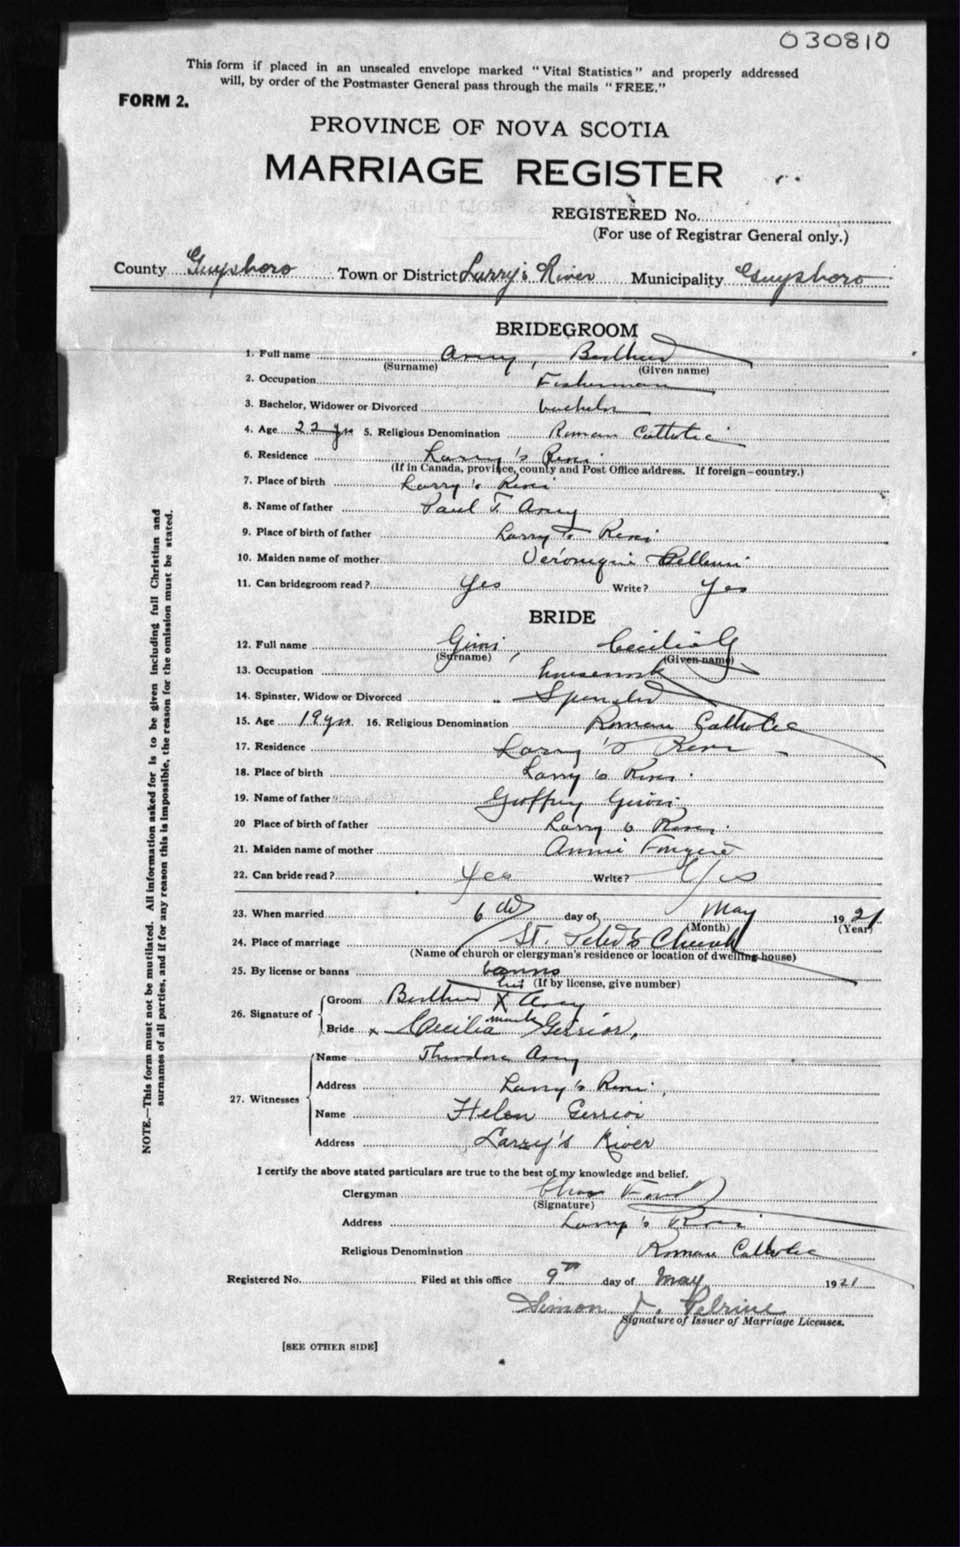 030810
This form if placed in an unsealed envelope marked "Vital Statistics" and properly addressed
will, by order of the Postmaster General pass through the mails "FREE."
FORM 2.
PROVINCE OF NOVA SCOTIA
MARRIAGE REGISTER
REGISTERED No.
(For use of Registrar General only.)
County Guysboro Town or District Larry's River Municipality Guysboro
BRIDEGROOM
1. Full name Avery,
(Surname) (Given name)
2. Occupation Fisherman
3. Bachelor, Widower or Divorced bachelor
4. Age 22 yrs 5. Religious Denomination Roman Catholic
6. Residence Larry's River
(If in Canada, province, county and Post Office address. If foreign—country.)
7. Place of birth Larry's River
8. Name of father Paul T. Avery
9. Place of birth of father Larry's River
10. Maiden name of mother
11. Can bridegroom read? Yes Write? Yes
BRIDE
12. Full name , Cecilia G
(Surname) (Given name)
13. Occupation housework
14. Spinster, Widow or Divorced Spinster
15. Age 19 yrs. 16. Religious Denomination Roman Catholic
17. Residence Larry's River
18. Place of birth Larry's River
19. Name of father
20 Place of birth of father Larry's River
21. Maiden name of mother Annie
22. Can bride read? Yes Write? Yes
23. When married 6th day of May 1921
(Month) (Year)
24. Place of marriage St. Peter's Church
(Name of church or clergyman's residence or location of dwelling house)
25. By license or banns banns
(If by license, give number)
his
26. Signature of Groom X Avery
mark
Bride x Cecilia Gerrior,
27. Witnesses Name Theodore Avery
Address Larry's River
Name Helen Gerrior
Address Larry's River
I certify the above stated particulars are true to the best of my knowledge and belief.
Clergyman
(Signature)
Address Larry's River
Religious Denomination Roman Catholic
Registered No. Filed at this office 9th day of May 1921
Simon J. Pelrine
Signature of Issuer of Marriage Licenses.
[SEE OTHER SIDE]
NOTE.—This form must not be mutilated. All information asked for is to be given including full Christian and
surnames of all parties, and if for any reason this is impossible, the reason for the omission must be stated.